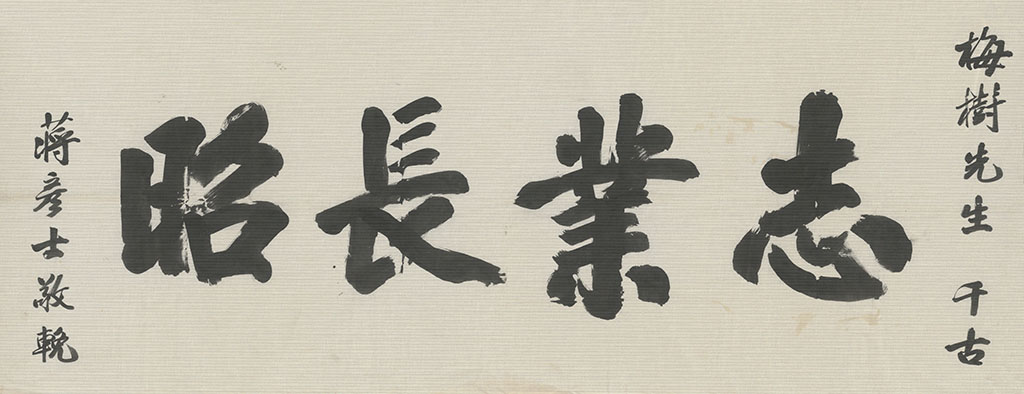 梅樹先生 千古
志業長昭
蔣彥士敬輓